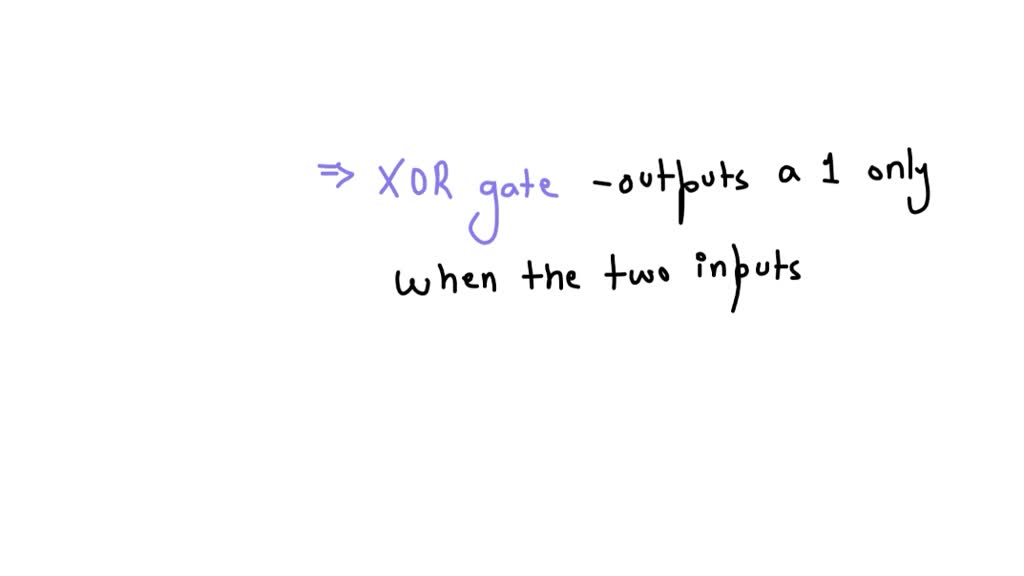 ⇒ XOR gate - outputs a 1 only
when the two inputs